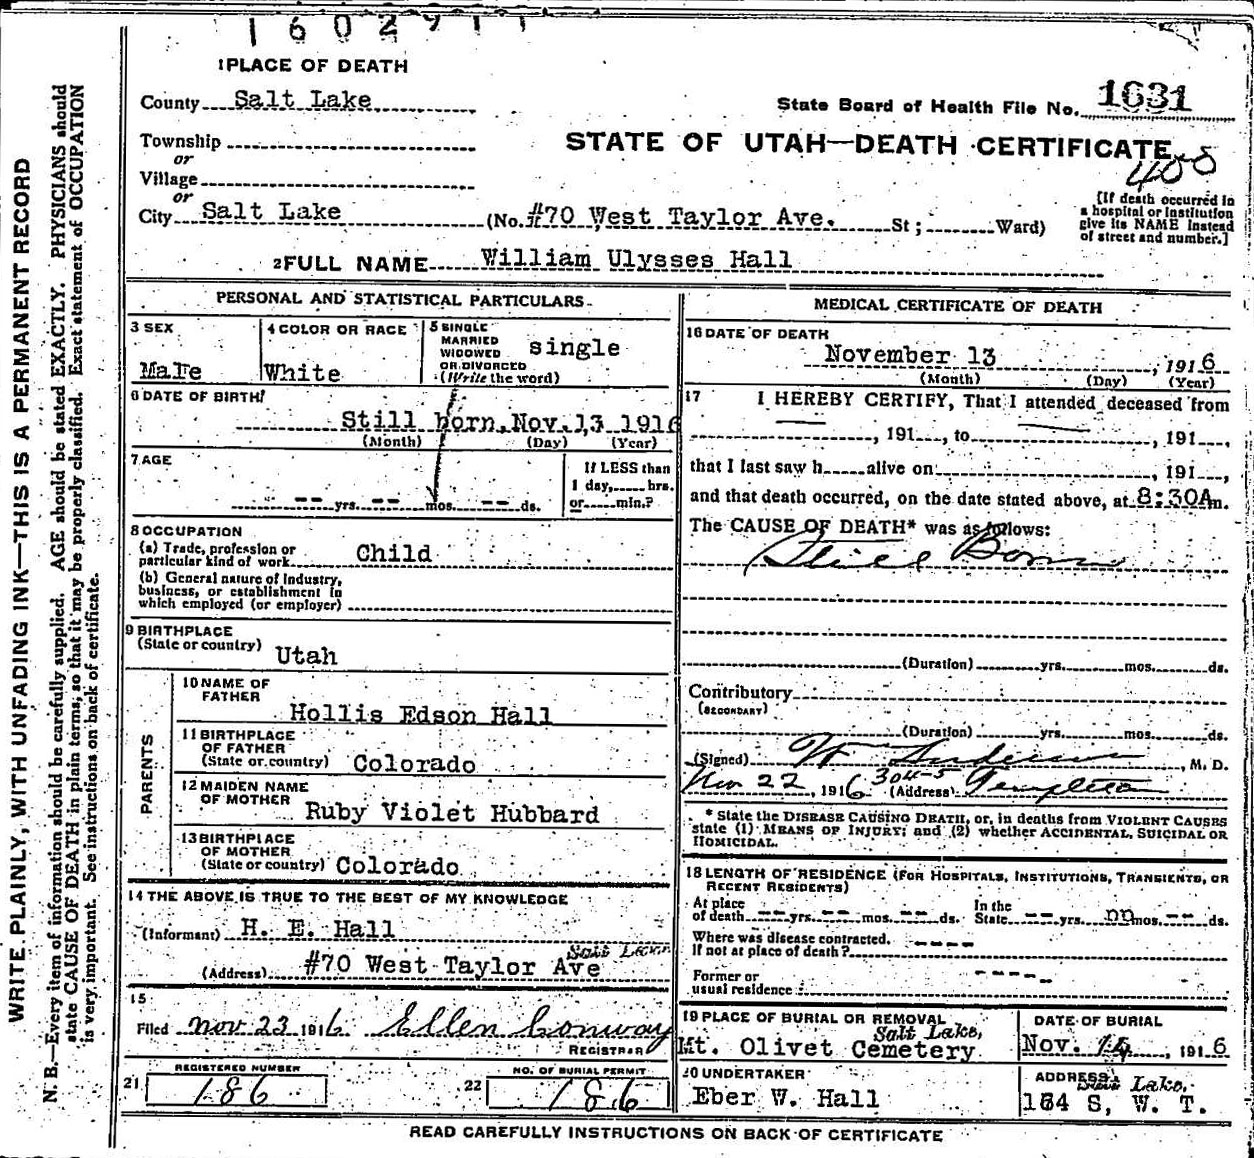 1602911
1 PLACE OF DEATH
County Salt Lake
State Board of Health File No. 1631
Township
or
STATE OF UTAH—DEATH CERTIFICATE
Village
or
400
City Salt Lake (No. #70 West Taylor Ave. St; Ward)
[If death occurred in
a hospital or institution
give its NAME instead
of street and number.]
2 FULL NAME William Ulysses Hall
PERSONAL AND STATISTICAL PARTICULARS
3 SEX
Male
4 COLOR OR RACE
White
5 SINGLE
MARRIED
WIDOWED
OR DIVORCED
(Write the word)
single
6 DATE OF BIRTH
Still born, Nov. 13 1916
(Month) (Day) (Year)
7 AGE
-- yrs. -- mos. -- ds.
If LESS than
1 day, hrs.
or min.?
8 OCCUPATION
(a) Trade, profession or
particular kind of work Child
(b) General nature of Industry,
business, or establishment in
which employed (or employer)
9 BIRTHPLACE
(State or country) Utah
PARENTS
10 NAME OF
FATHER
Hollis Edson Hall
11 BIRTHPLACE
OF FATHER
(State or country) Colorado
12 MAIDEN NAME
OF MOTHER
Ruby Violet Hubbard
13 BIRTHPLACE
OF MOTHER
(State or country) Colorado
14 THE ABOVE IS TRUE TO THE BEST OF MY KNOWLEDGE
(Informant) H. E. Hall
Salt Lake
(Address) #70 West Taylor Ave
15
Filed Nov 23 1916 Ellen Conway
REGISTRAR
REGISTERED NUMBER
21 186
NO. OF BURIAL PERMIT
22 186
MEDICAL CERTIFICATE OF DEATH
16 DATE OF DEATH
November 13, 1916
(Month) (Day) (Year)
17 I HEREBY CERTIFY, That I attended deceased from
, 191 , to , 191 ,
that I last saw h alive on , 191 ,
and that death occurred, on the date stated above, at 8:30A m.
The CAUSE OF DEATH* was as follows:
Still Born
(Duration) yrs. mos. ds.
Contributory
(SECONDARY)
(Duration) yrs. mos. ds.
(Signed) W Anderson, M. D.
Nov 22, 1916 (Address) 304-5 Templeton
* State the DISEASE CAUSING DEATH, or, in deaths from VIOLENT CAUSES
state (1) MEANS OF INJURY; and (2) whether ACCIDENTAL, SUICIDAL OR
HOMICIDAL.
18 LENGTH OF RESIDENCE (FOR HOSPITALS, INSTITUTIONS, TRANSIENTS, OR
RECENT RESIDENTS)
At place
of death -- yrs. -- mos. -- ds.
In the
State -- yrs. mos. -- ds.
Where was disease contracted.
If not at place of death? ----
Former or
usual residence ----
19 PLACE OF BURIAL OR REMOVAL
Salt Lake,
Mt. Olivet Cemetery
DATE OF BURIAL
Nov. 14, 1916
20 UNDERTAKER
Eber W. Hall
ADDRESS
Lake.
164 S, W. T.
READ CAREFULLY INSTRUCTIONS ON BACK OF CERTIFICATE
WRITE PLAINLY, WITH UNFADING INK—THIS IS A PERMANENT RECORD
N. B.—Every item of information should be carefully supplied. AGE should be stated EXACTLY. PHYSICIANS should
state CAUSE OF DEATH in plain terms, so that it may be properly classified. Exact statement of OCCUPATION
is very important. See instructions on back of certificate.